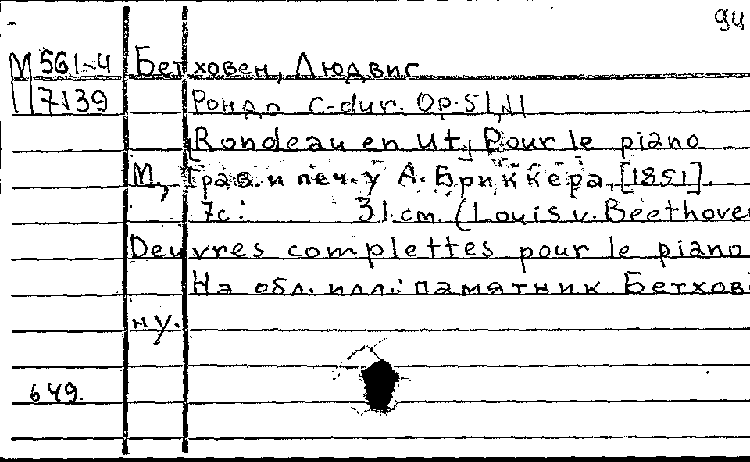 94
М 561-4 Бетховен, Людвиг
7139 Рондо C-dur. Op.51,N1
[Rondeau en ut.] Pour le piano
М., Грав. и печ. у А. Бриккера, [1851].
7с. 31.см. (Louis v. Beethoven
Oeuvres complettes pour le piano
На обл. илл.: памятник Бетхове
ну.
649.